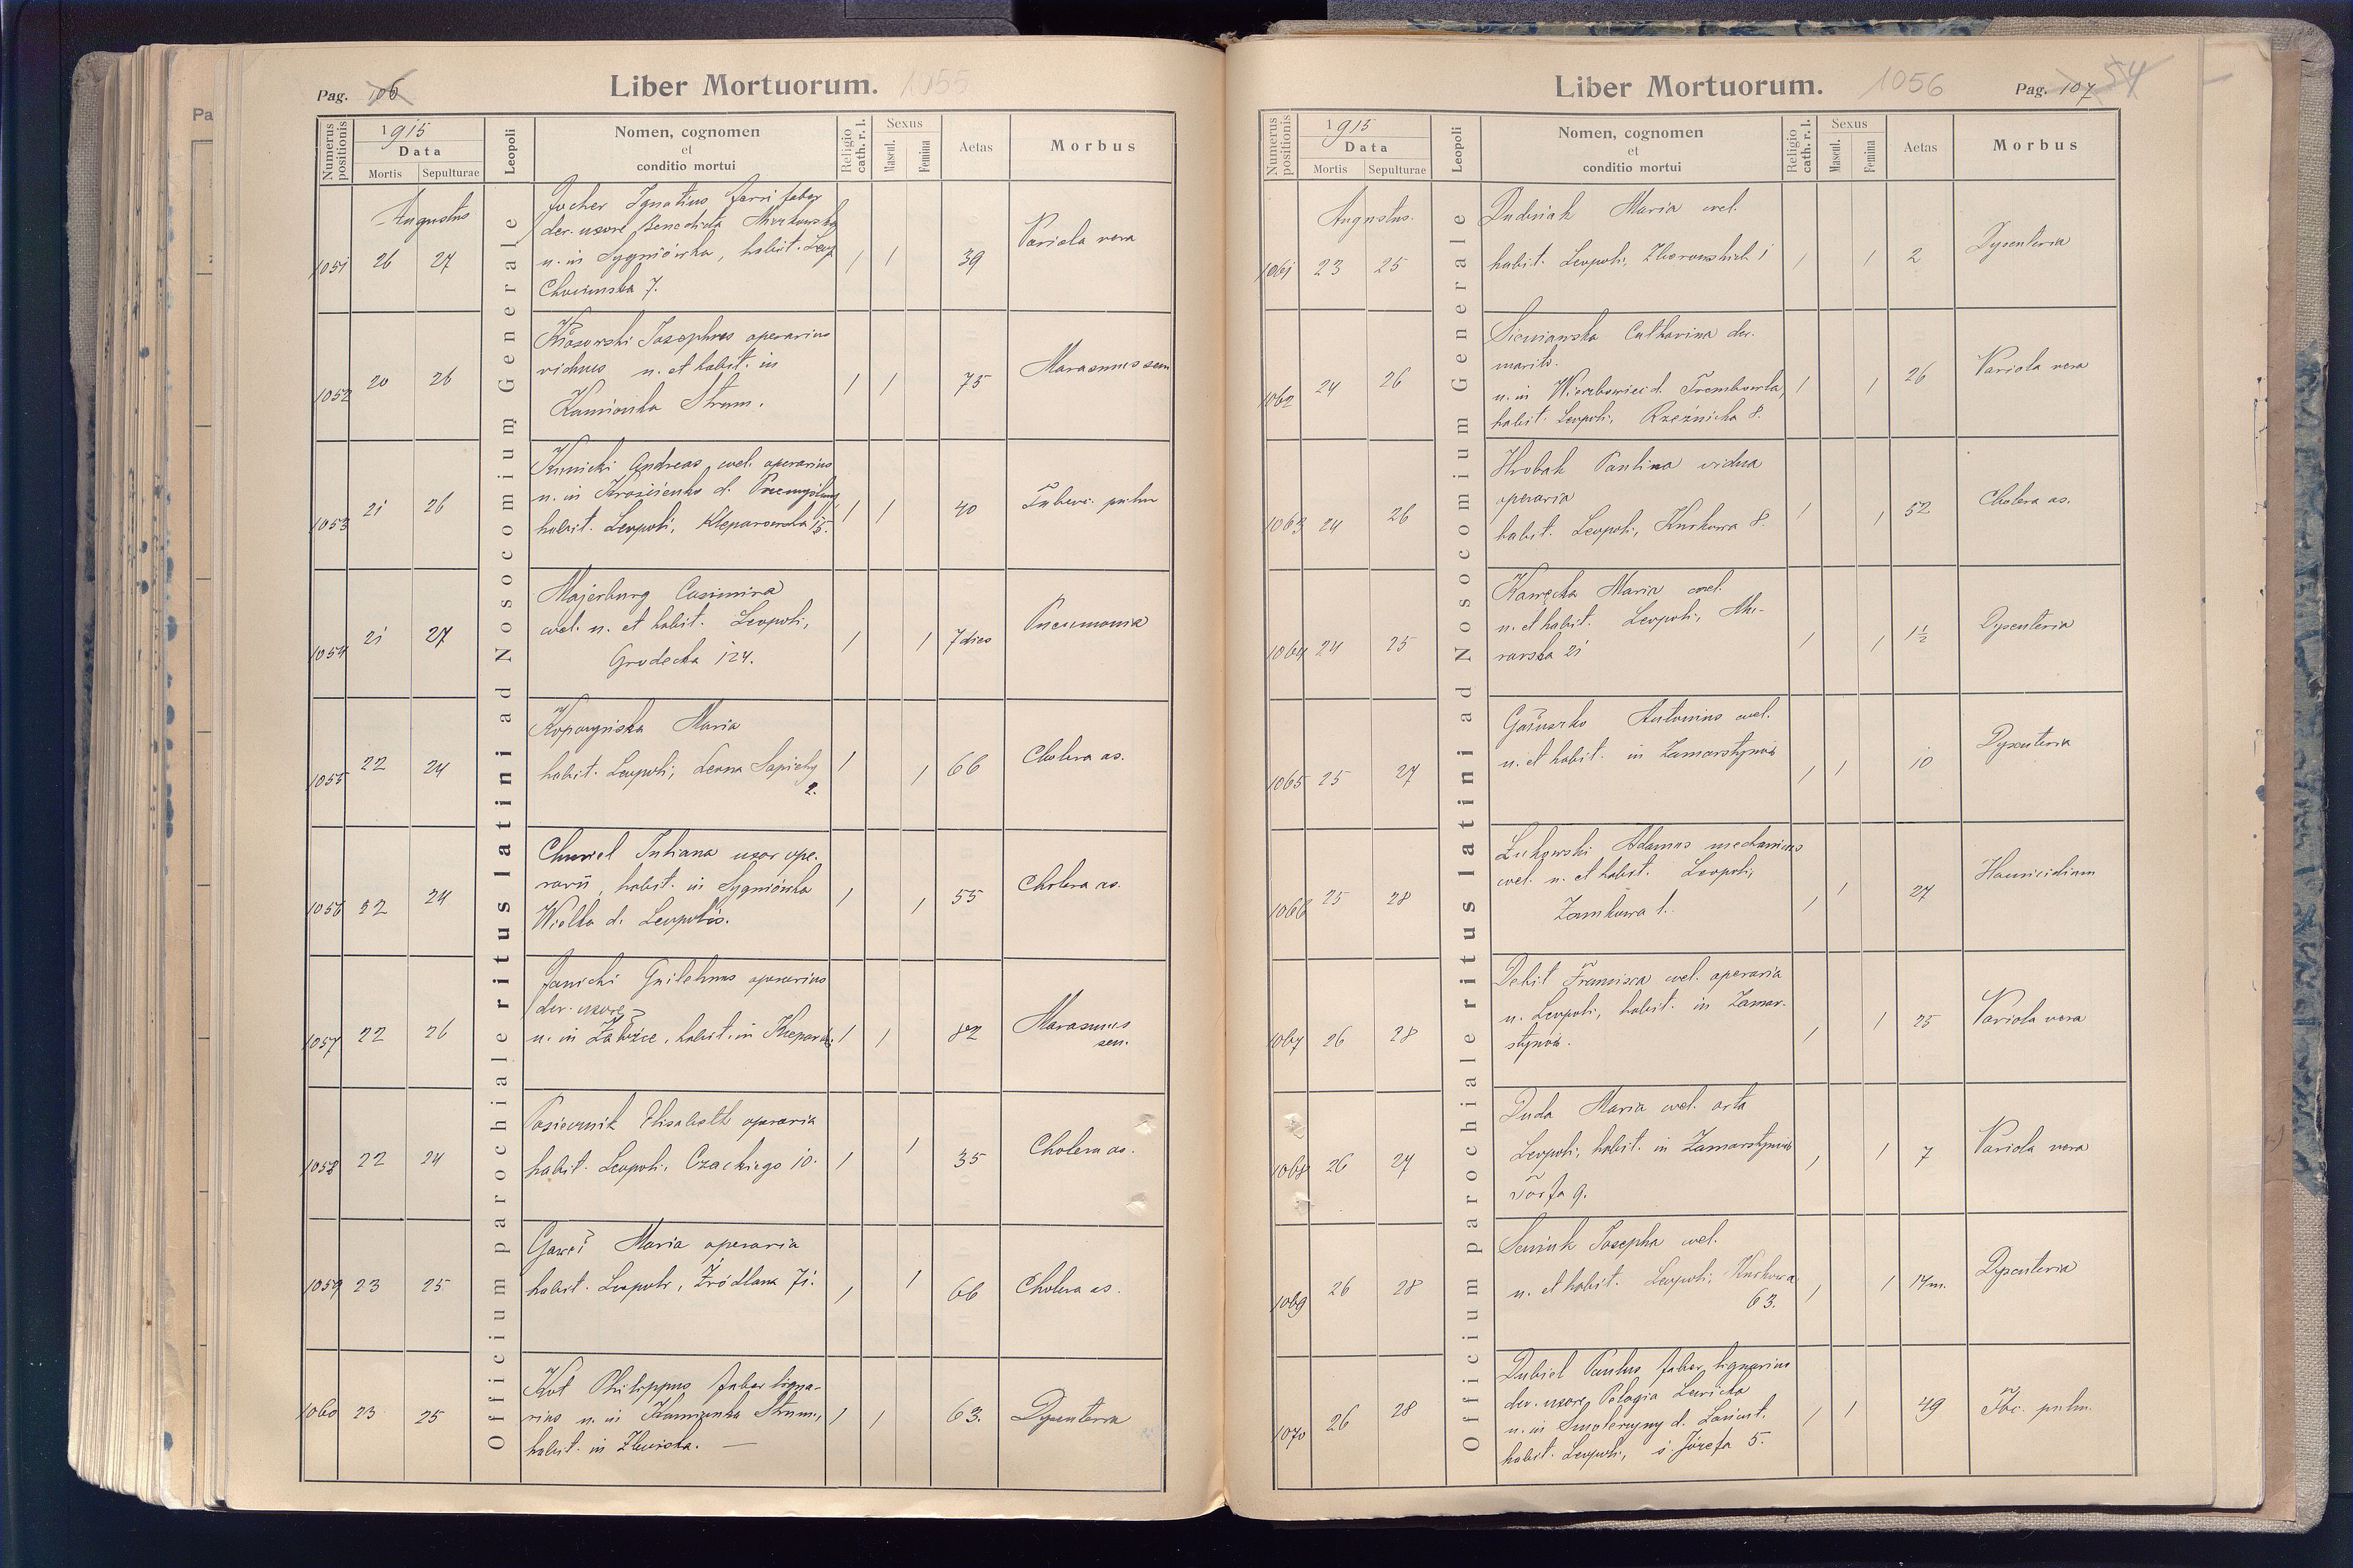 Pag. 106
Liber Mortuorum. 1055
Numerus positionis
1915
Data
Mortis Sepulturae
Leopoli
Nomen, cognomen
et
conditio mortui
Religio cath. r. l.
Sexus
Mascul. Femina
Aetas
Morbus
Officium parochiale ritus latini ad Nosocomium Generale
Augustus
Jocher Ignatius ferri faber
der. uxore Benedicta
n. in Sygniówka, habit. Leop.
Chocimska 7.
1051 26 27 / / 39 Variola vera
Kosowski Josephus operarius
viduus n. et habit. in
Kamionka Strum.
1052 20 26 / / 75 Marasmus sen
Kunicki Andreas, cael. operarius
n. in Krościenko d. Przemyślany
habit. Leopoli, Kleparowska 15.
1053 21 26 / / 40 Tuberc. pulm
Majerburg Casimira
cael. n. et habit. Leopoli,
Grodecka 124.
1054 21 27 / / 7 dies Pneumonia
Kopczyńska Maria
habit. Leopoli, Leona Sapiehy
2.
1055 22 24 / / 66 Cholera as.
Chmiel Juliana uxor ope-
rarii, habit. in Sygniówka
Wielka d. Leopolis.
1056 22 24 / / 55 Cholera as.
Janicki Guilelmus operarius
der. uxore
n. in habit. in Kleparów
1057 22 26 / / 82 Marasmus
sen.
Pasiecznik Elisabeth operaria
habit. Leopoli, Czackiego 10.
1058 22 24 / / 35 Cholera as.
Gaweł Maria operaria
habit. Leopoli, Źródlana 71.
1059 23 25 / / 66 Cholera as.
Kot Philippus faber ligna-
rius n. in Kamionka Strum.,
habit. in Zboiska. —
1060 23 25 / / 63. Dysenteria
Liber Mortuorum. 1056
Pag. 107 54
Numerus positionis
1915
Data
Mortis Sepulturae
Leopoli
Nomen, cognomen
et
conditio mortui
Religio cath. r. l.
Sexus
Mascul. Femina
Aetas
Morbus
Officium parochiale ritus latini ad Nosocomium Generale
Augustus.
Dudniak Maria cael.
habit. Leopoli, Zborowskich 1
1061 23 25 / / 2 Dysenteria
Sieniawska Catharina der.
marito.
n. in Wierzbowiec d. Trembowla,
habit. Leopoli, Rzeźnicka 8.
1062 24 26 / / 26 Variola vera
Hrobak Paulina vidua
operaria
habit. Leopoli, Kurkowa 8.
1063 24 26 / / 52 Cholera as.
Kawęcka Maria cael.
n. et habit. Leopoli,
21
1064 24 25 / / 1½ Dysenteria
Antonius cael.
n. et habit. in Zamarstynów
1065 25 27 / / 10 Dysenteria
Żukowski Adamus mechanicus
cael. n. et habit. Leopoli,
Zamkowa 1.
1066 25 28 / / 27 Homicidium
Francisca cael. operaria
n. Leopoli, habit. in Zamar-
stynów.
1067 26 28 / / 25 Variola vera
Duda Maria cael. orta
Leopoli, habit. in Zamarstynów
9.
1068 26 27 / / 7 Variola vera
Seniuk Josepha cael.
n. et habit. Leopoli, Kurkowa
63.
1069 26 28 / / 14 m. Dysenteria
Dubiel Paulus faber lignarius
der. uxore Pelagia Lewicka
n. in Smolarzyny d. Łańcut.
habit. Leopoli, ś. Józefa 5.
1070 26 28 / / 49 Tbc. pulm.